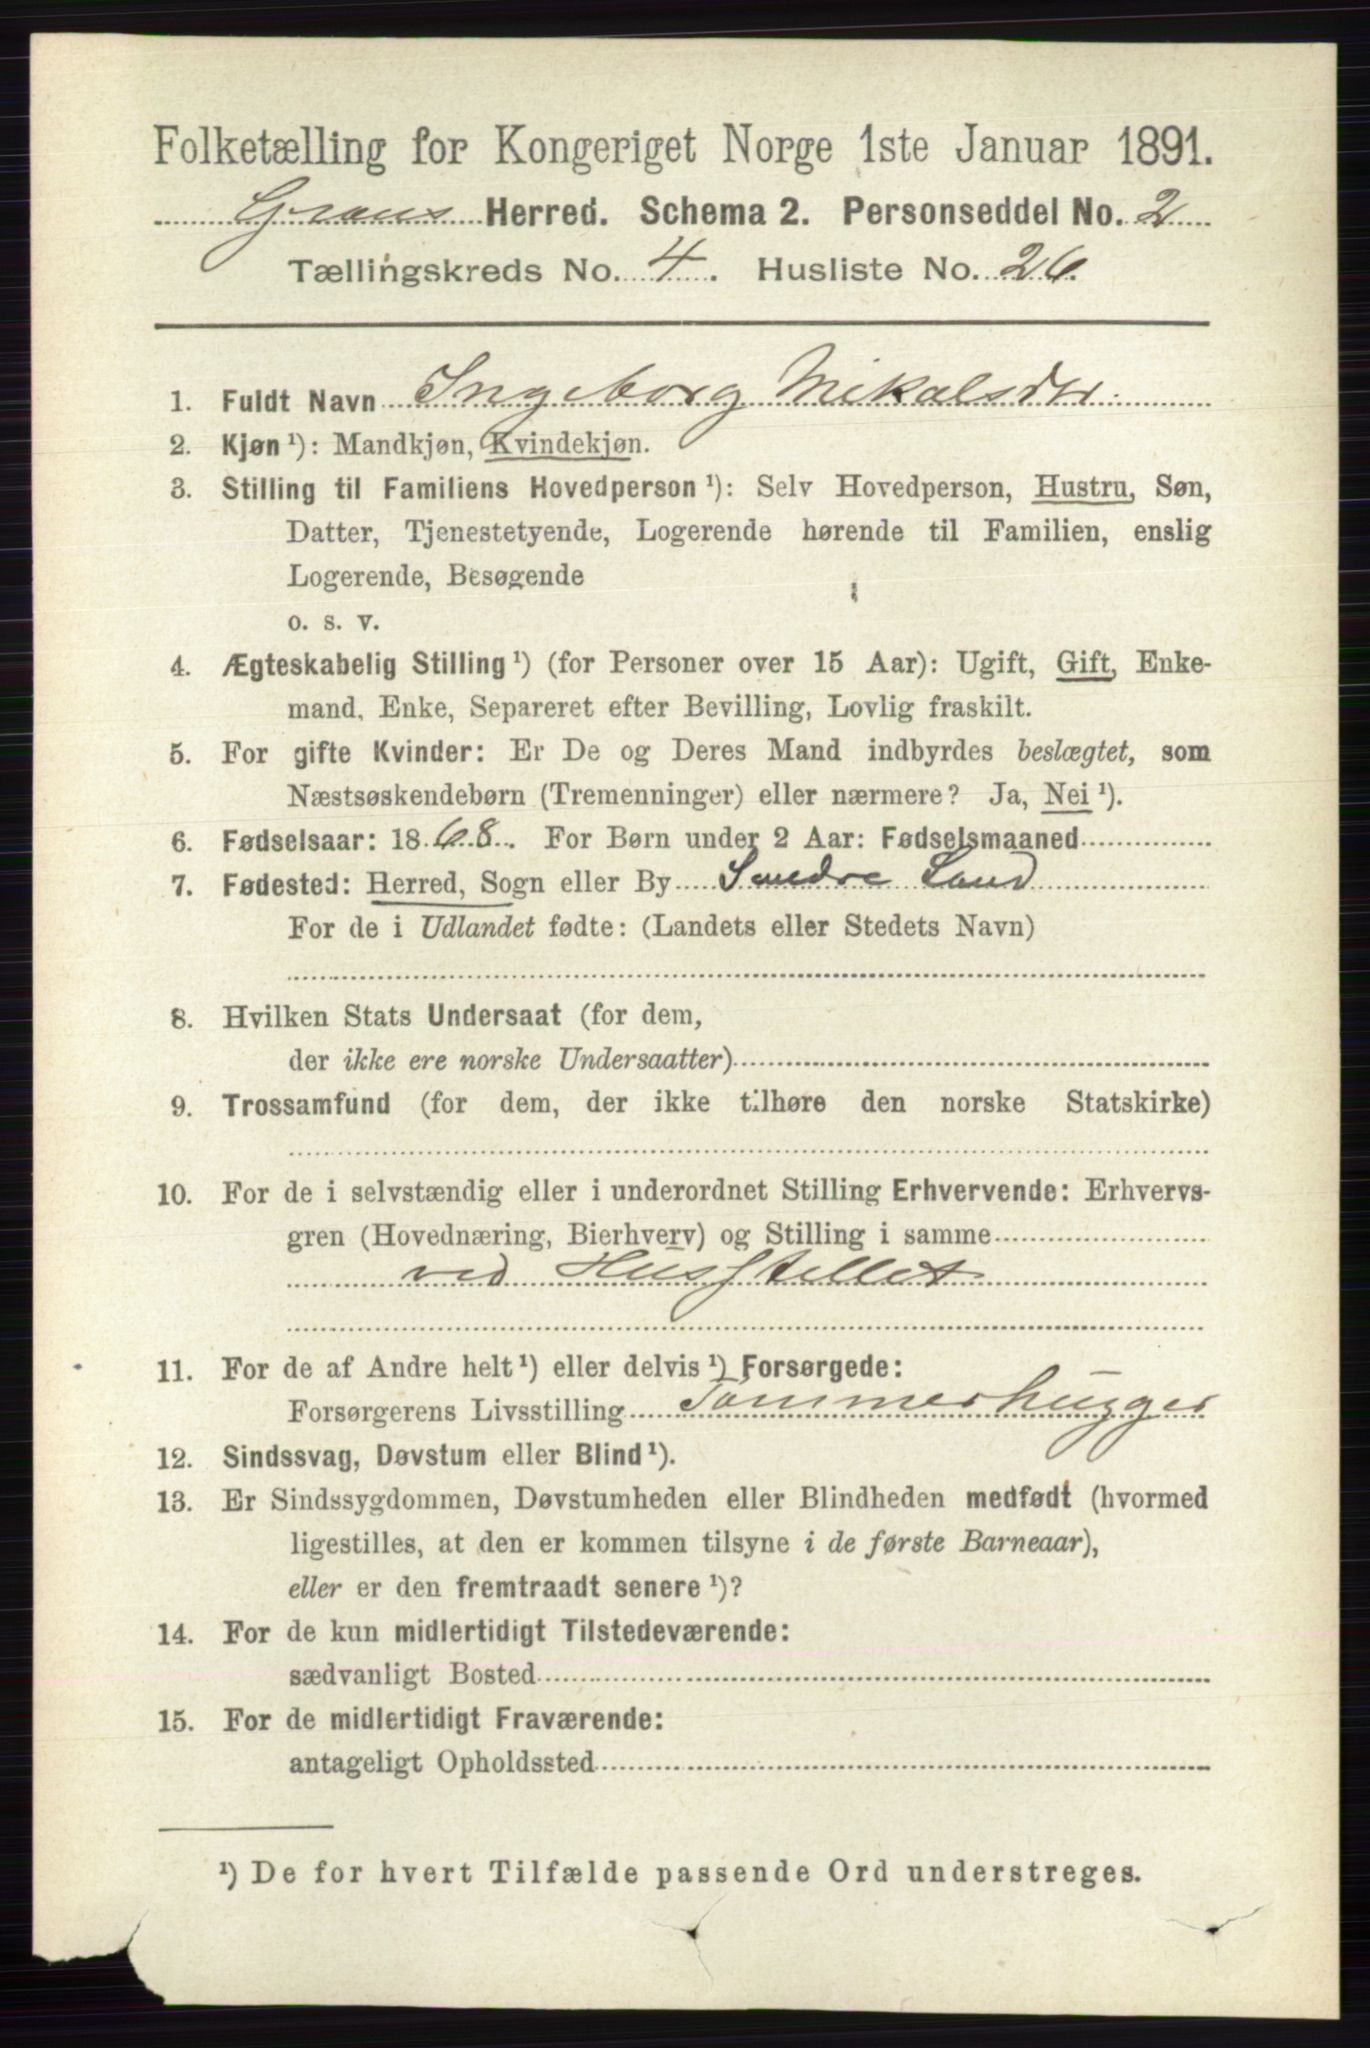 Folketælling for Kongeriget Norge 1ste Januar 1891.
Grans Herred. Schema 2. Personseddel No. 2
Tællingskreds No. 4. Husliste No. 26.
1. Fuldt Navn Ingeborg Mikalsdtr.
2. Kjøn ¹): Mandkjøn, Kvindekjøn.
3. Stilling til Familiens Hovedperson ¹): Selv Hovedperson, Hustru, Søn,
Datter, Tjenestetyende, Logerende hørende til Familien, enslig
Logerende, Besøgende
o. s. v.
4. Ægteskabelig Stilling ¹) (for Personer over 15 Aar): Ugift, Gift, Enke-
mand, Enke, Separeret efter Bevilling, Lovlig fraskilt.
5. For gifte Kvinder: Er De og Deres Mand indbyrdes beslægtet, som
Næstsøskendebørn (Tremenninger) eller nærmere? Ja, Nei ¹).
6. Fødselsaar: 1868. For Børn under 2 Aar: Fødselsmaaned
7. Fødested: Herred, Sogn eller By Søndre Land
For de i Udlandet fødte: (Landets eller Stedets Navn)
8. Hvilken Stats Undersaat (for dem,
der ikke ere norske Undersaatter)
9. Trossamfund (for dem, der ikke tilhøre den norske Statskirke)
10. For de i selvstændig eller i underordnet Stilling Erhvervende: Erhvervs-
gren (Hovednæring, Bierhverv) og Stilling i samme
ved Husstellet
11. For de af Andre helt ¹) eller delvis ¹) Forsørgede:
Forsørgerens Livsstilling Tømmerhugger
12. Sindssvag, Døvstum eller Blind ¹).
13. Er Sindssygdommen, Døvstumheden eller Blindheden medfødt (hvormed
ligestilles, at den er kommen tilsyne i de første Barneaar),
eller er den fremtraadt senere ¹)?
14. For de kun midlertidigt Tilstedeværende:
sædvanligt Bosted
15. For de midlertidigt Fraværende:
antageligt Opholdssted
¹) De for hvert Tilfælde passende Ord understreges.